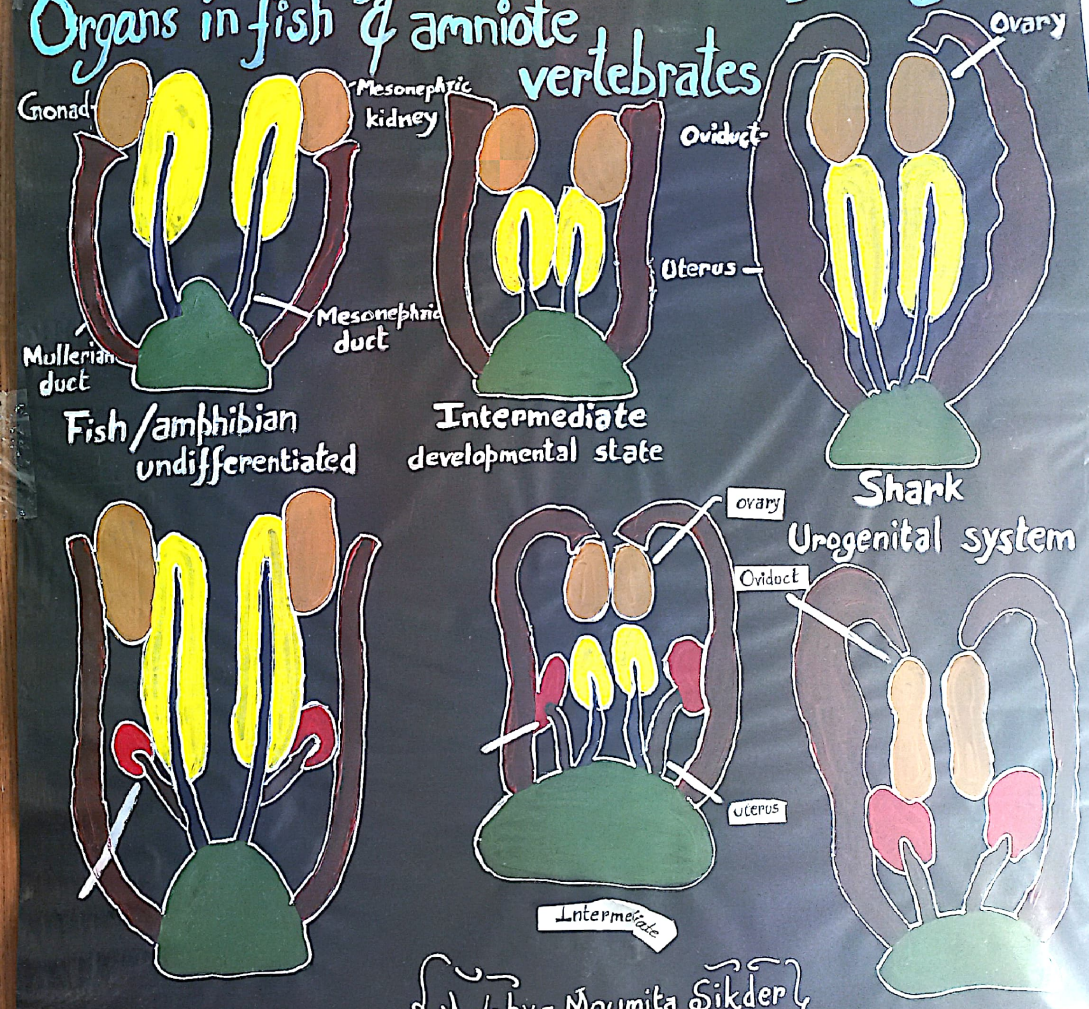 Organs in fish & amniote
vertebrates
Gonad
Mesonephric
kidney
Mullerian
duct
Mesonephric
duct
Fish/amphibian
undifferentiated
Intermediate
developmental state
Ovary
Oviduct
Uterus
Shark
Urogenital system
ovary
Oviduct
uterus
Intermediate
by - Moumita Sikder